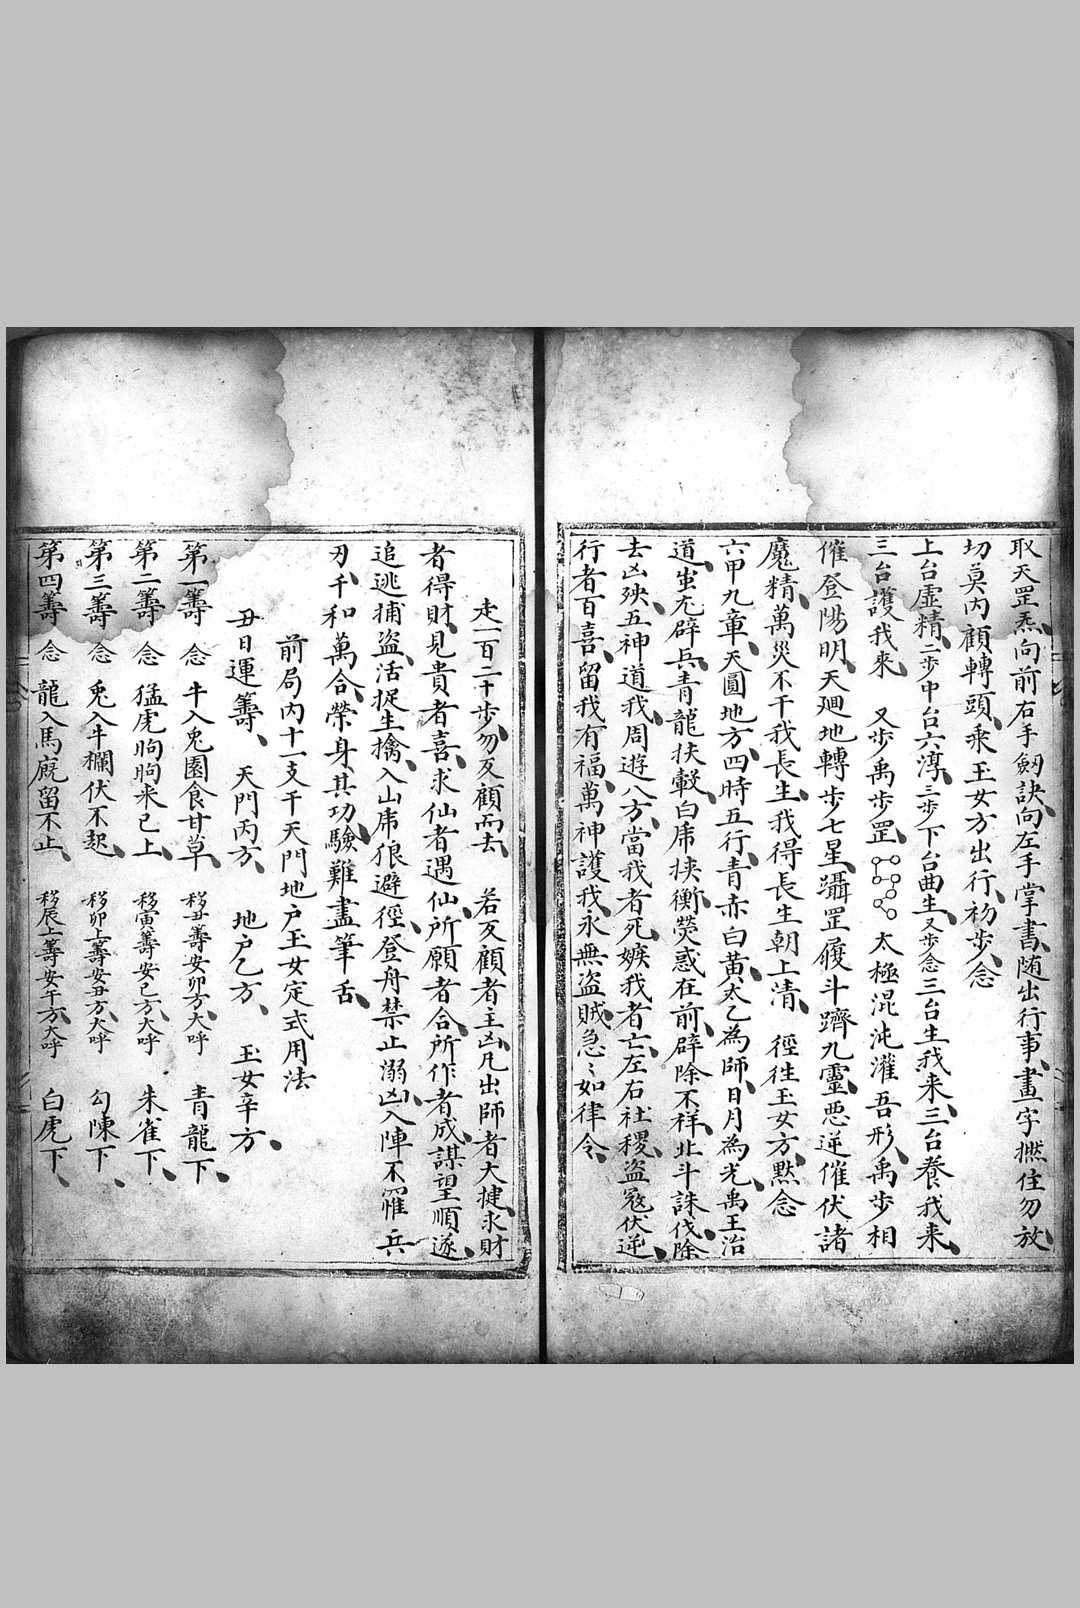 取天罡炁向前右手劒訣向左手掌書随出行事畫字撚住勿放
切莫內顧轉頭乘玉女方出行初步念
上台虛精二步中台六淳三步下台曲生又步念三台生我来三台養我来
三台護我来 又步禹步罡 太極混沌灌吾形禹步相
催登陽明天廻地轉步七星躡罡履斗躋九靈惡逆催伏諸
魔精萬災不干我長生我得長生朝上清 徑徃玉女方黙念
六甲九章天圓地方四時五行青赤白黃太乙為師日月為光禹王治
道蚩尤辟兵青龍扶轂白虎挟衡熒惑在前辟除不祥北斗誅伐除
去凶殃五神道我周遊八方當我者死嫉我者亡左右社稷盜冦伏逆
行者百喜留我有福萬神護我永無盜賊急〻如律令
走一百二十步勿反顧而去 若反顧者主凶凡出師者大捷求財
者得財見貴者喜求仙者遇仙所願者合所作者成謀望順遂
追逃捕盜活捉生擒入山虎狼避徑登舟禁止溺凶入陣不罹兵
刃千和萬合榮身其功驗難盡筆舌
前局內十二支干天門地户玉女定式用法
丑日運籌 天門丙方 地户乙方 玉女辛方
第一籌 念 牛入兎園食甘草 移丑籌安卯方大呼 青龍下
第二籌 念 猛虎眗眗来巳上 移寅籌安巳方大呼 朱雀下
第三籌 念 兎入牛欄伏不起 移卯上籌安丑方大呼 勾陳下
第四籌 念 龍入馬廐留不止 移辰上籌安午方大呼 白虎下